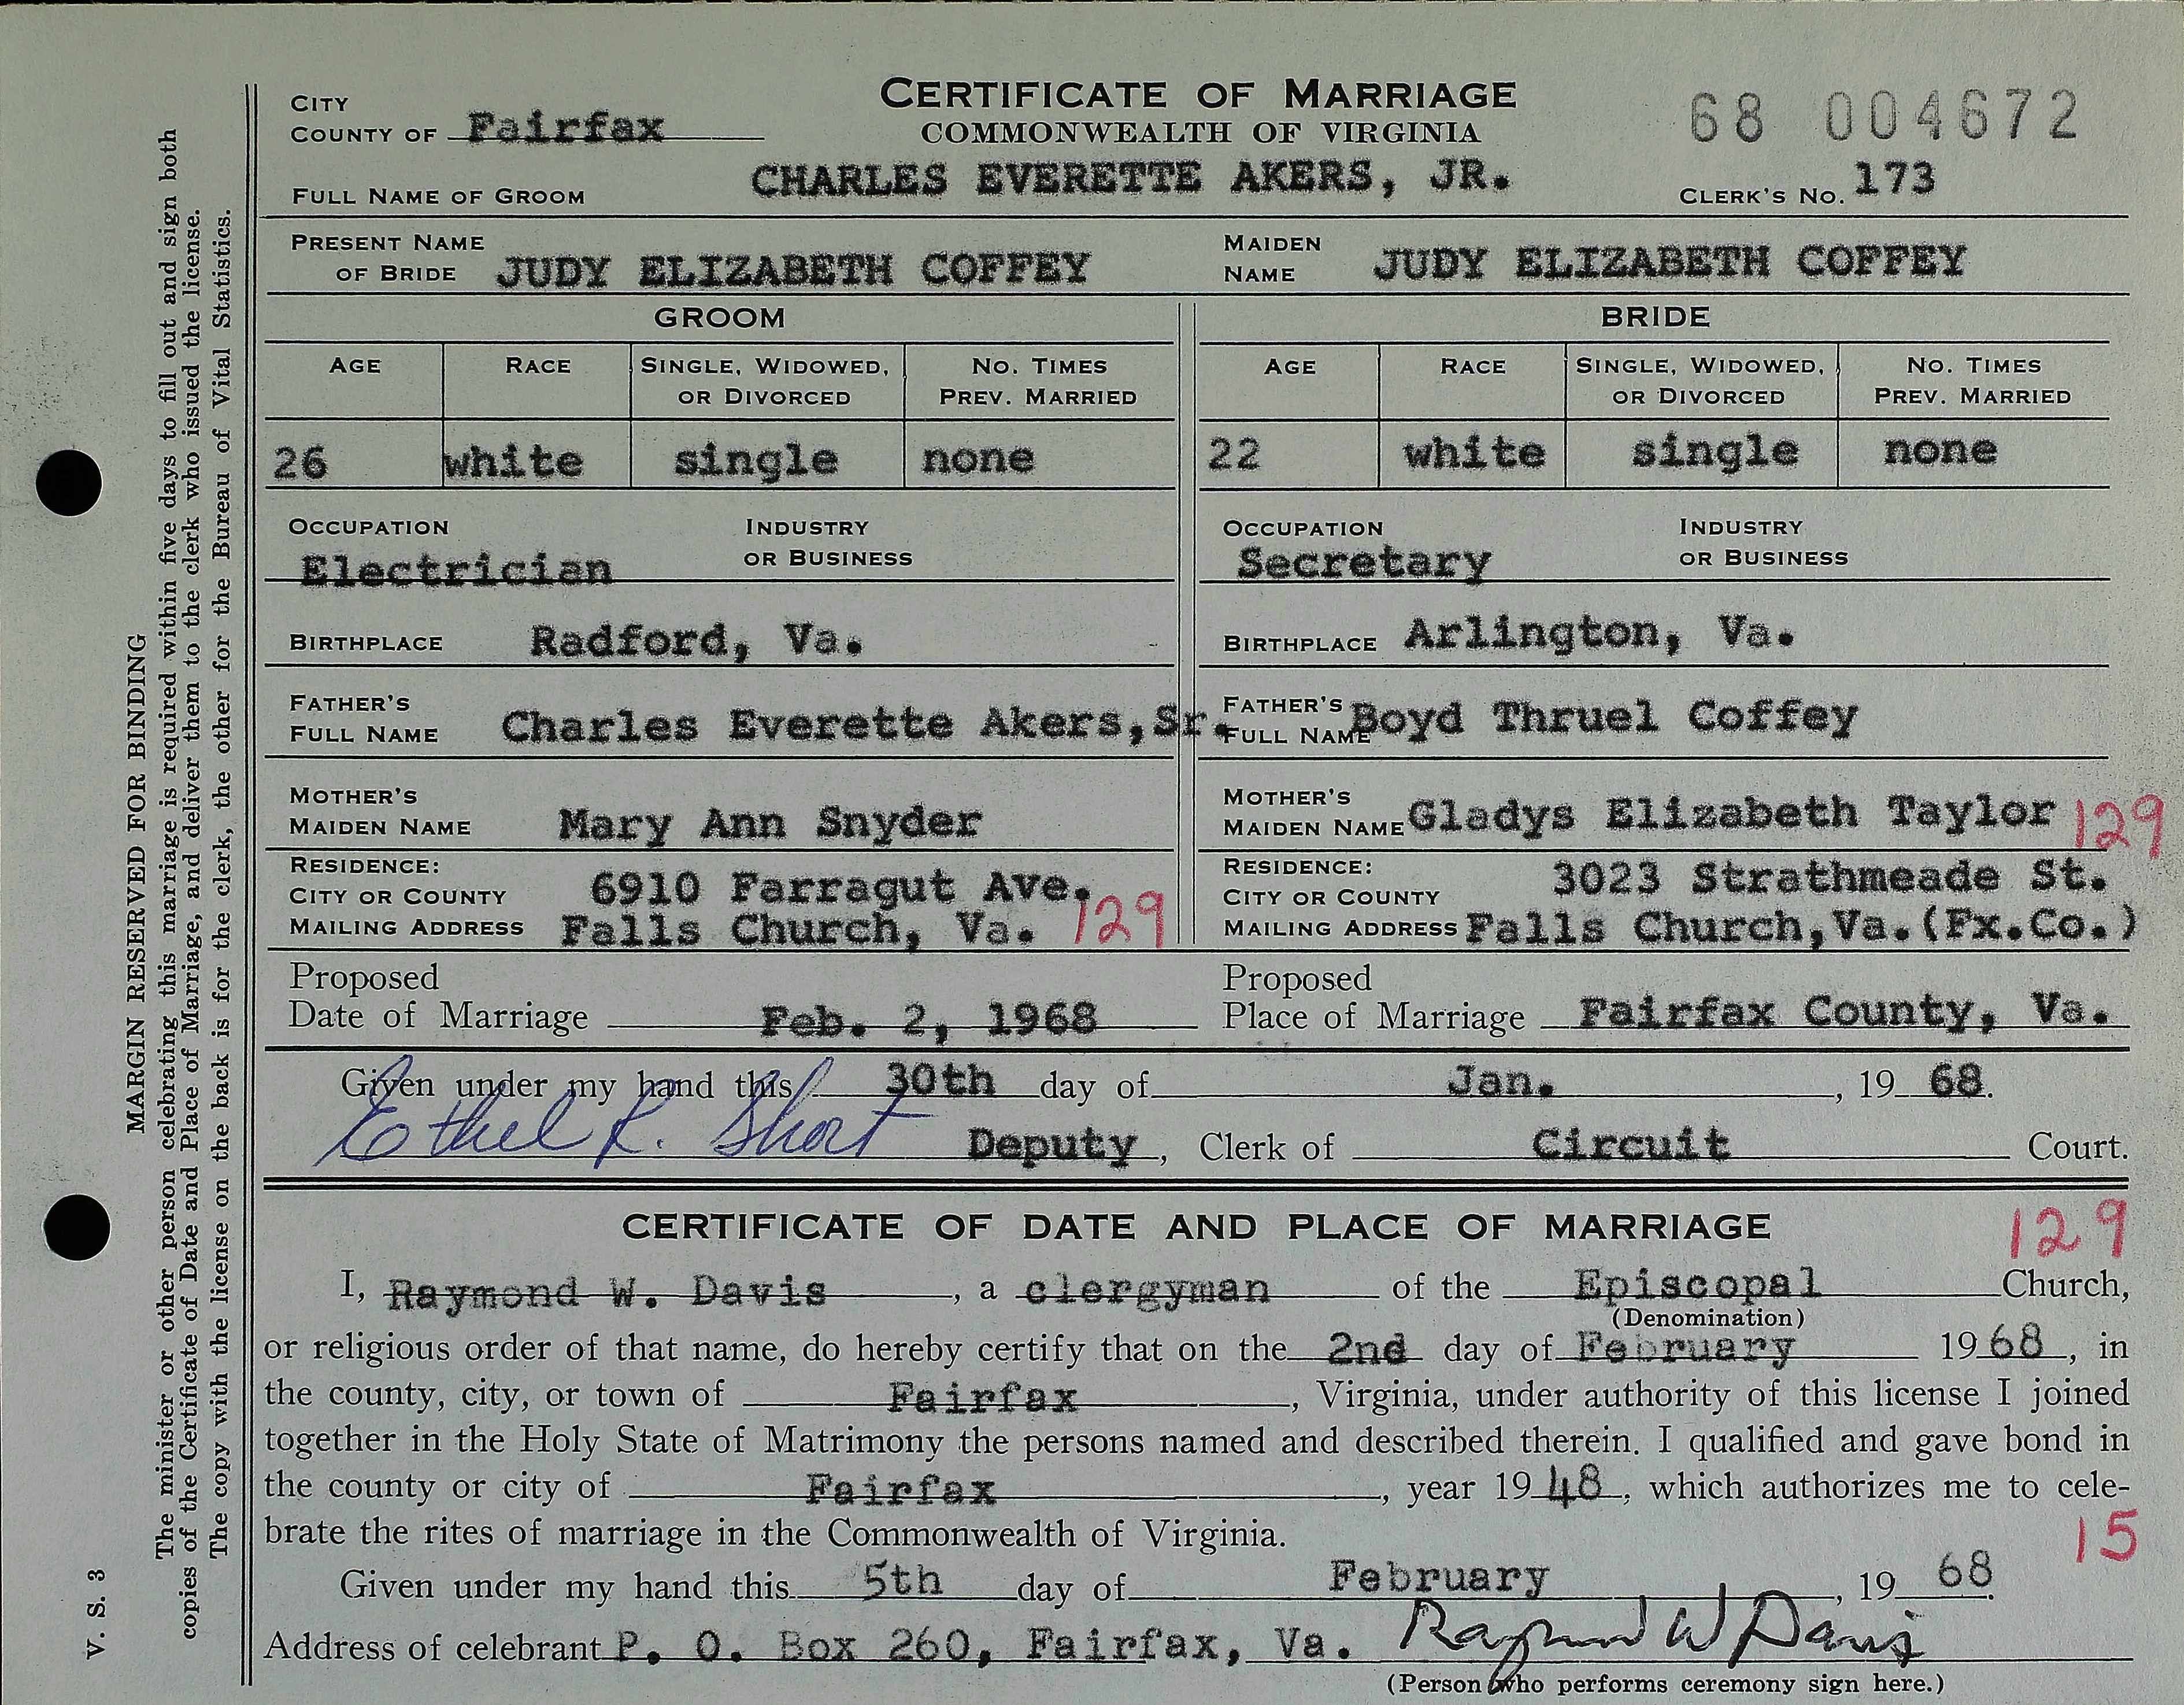 CITY
COUNTY OF Fairfax
CERTIFICATE OF MARRIAGE
COMMONWEALTH OF VIRGINIA
68 004672
FULL NAME OF GROOM CHARLES EVERETTE AKERS, JR. CLERK'S NO. 173
PRESENT NAME OF BRIDE JUDY ELIZABETH COFFEY MAIDEN NAME JUDY ELIZABETH COFFEY
GROOM
AGE RACE SINGLE, WIDOWED, OR DIVORCED NO. TIMES PREV. MARRIED
26 white single none
OCCUPATION Electrician INDUSTRY OR BUSINESS
BIRTHPLACE Radford, Va.
FATHER'S FULL NAME Charles Everette Akers,Sr.
MOTHER'S MAIDEN NAME Mary Ann Snyder
RESIDENCE:
CITY OR COUNTY 6910 Farragut Ave.
MAILING ADDRESS Falls Church, Va. 129
BRIDE
AGE RACE SINGLE, WIDOWED, OR DIVORCED NO. TIMES PREV. MARRIED
22 white single none
OCCUPATION Secretary INDUSTRY OR BUSINESS
BIRTHPLACE Arlington, Va.
FATHER'S FULL NAME Boyd Thruel Coffey
MOTHER'S MAIDEN NAME Gladys Elizabeth Taylor 129
RESIDENCE:
CITY OR COUNTY 3023 Strathmeade St.
MAILING ADDRESS Falls Church,Va.(Fx.Co.)
Proposed Date of Marriage Feb. 2, 1968 Proposed Place of Marriage Fairfax County, Va.
Given under my hand this 30th day of Jan., 19 68.
Ethel R. Short Deputy, Clerk of Circuit Court.
CERTIFICATE OF DATE AND PLACE OF MARRIAGE 129
I, Raymond W. Davis, a clergyman of the Episcopal Church,
(Denomination)
or religious order of that name, do hereby certify that on the 2nd day of February 1968, in
the county, city, or town of Fairfax, Virginia, under authority of this license I joined
together in the Holy State of Matrimony the persons named and described therein. I qualified and gave bond in
the county or city of Fairfax, year 1948, which authorizes me to cele-
brate the rites of marriage in the Commonwealth of Virginia. 15
Given under my hand this 5th day of February, 19 68.
Address of celebrant P. O. Box 260, Fairfax, Va. Raymond W Davis
(Person who performs ceremony sign here.)
MARGIN RESERVED FOR BINDING
The minister or other person celebrating this marriage is required within five days to fill out and sign both
copies of the Certificate of Date and Place of Marriage, and deliver them to the clerk who issued the license.
The copy with the license on the back is for the clerk, the other for the Bureau of Vital Statistics.
V. S. 3